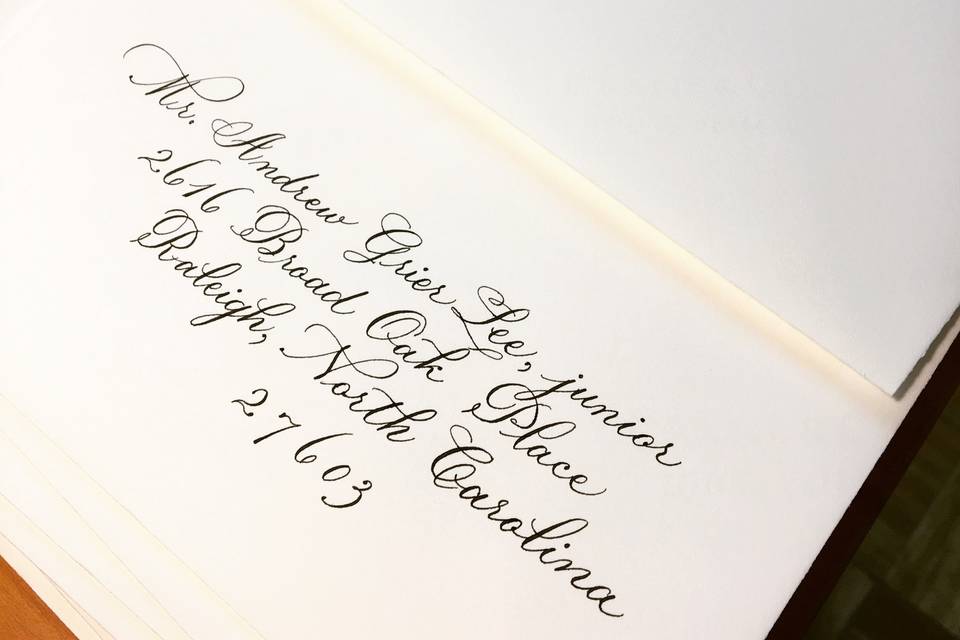 Mr. Andrew Grier Lee, junior
2616 Broad Oak Place
Raleigh, North Carolina
27603